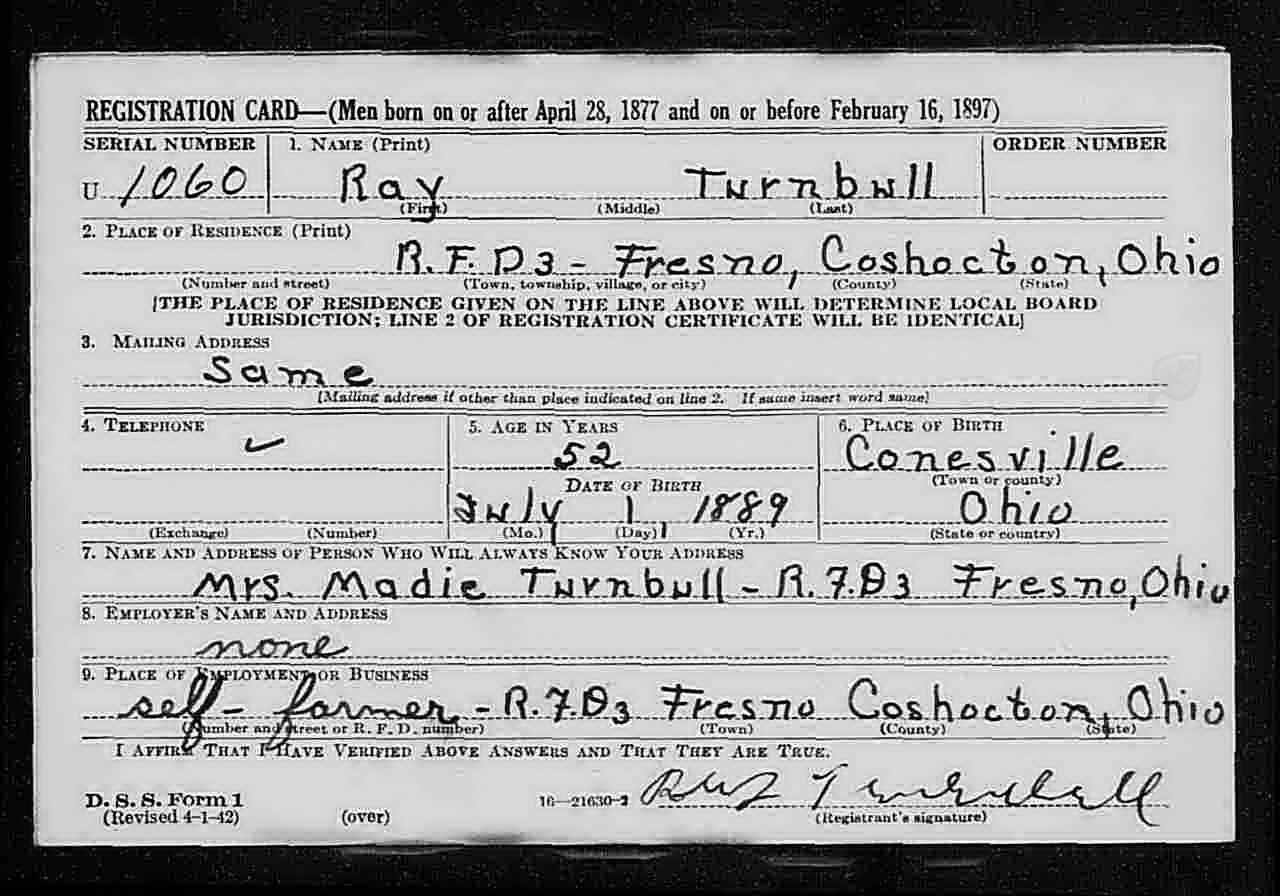 REGISTRATION CARD—(Men born on or after April 28, 1877 and on or before February 16, 1897)
SERIAL NUMBER 1. NAME (Print) ORDER NUMBER
U 1060 Ray Turnbull
(First) (Middle) (Last)
2. PLACE OF RESIDENCE (Print)
R.F.D 3 - Fresno, Coshocton, Ohio
(Number and street) (Town, township, village, or city) (County) (State)
[THE PLACE OF RESIDENCE GIVEN ON THE LINE ABOVE WILL DETERMINE LOCAL BOARD
JURISDICTION; LINE 2 OF REGISTRATION CERTIFICATE WILL BE IDENTICAL]
3. MAILING ADDRESS
Same
[Mailing address if other than place indicated on line 2. If same insert word same]
4. TELEPHONE 5. AGE IN YEARS 6. PLACE OF BIRTH
✓ 52 Conesville
DATE OF BIRTH (Town or county)
July 1 1889 Ohio
(Exchange) (Number) (Mo.) (Day) (Yr.) (State or country)
7. NAME AND ADDRESS OF PERSON WHO WILL ALWAYS KNOW YOUR ADDRESS
Mrs. Madie Turnbull - R.F.D3 Fresno, Ohio
8. EMPLOYER'S NAME AND ADDRESS
none
9. PLACE OF EMPLOYMENT OR BUSINESS
self - farmer - R.F.D3 Fresno Coshocton, Ohio
(Number and street or R. F. D. number) (Town) (County) (State)
I AFFIRM THAT I HAVE VERIFIED ABOVE ANSWERS AND THAT THEY ARE TRUE.
D. S. S. Form 1 16—21630-2 Ray Turnbull
(Revised 4-1-42) (over) (Registrant's signature)